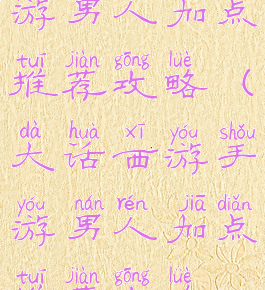 游男人加点
tuī jiàn gōng lüè
推荐攻略（
dà huà xī yóu shǒu
大话西游手
yóu nán rén jiā diǎn
游男人加点
tuī jiàn gōng lüè